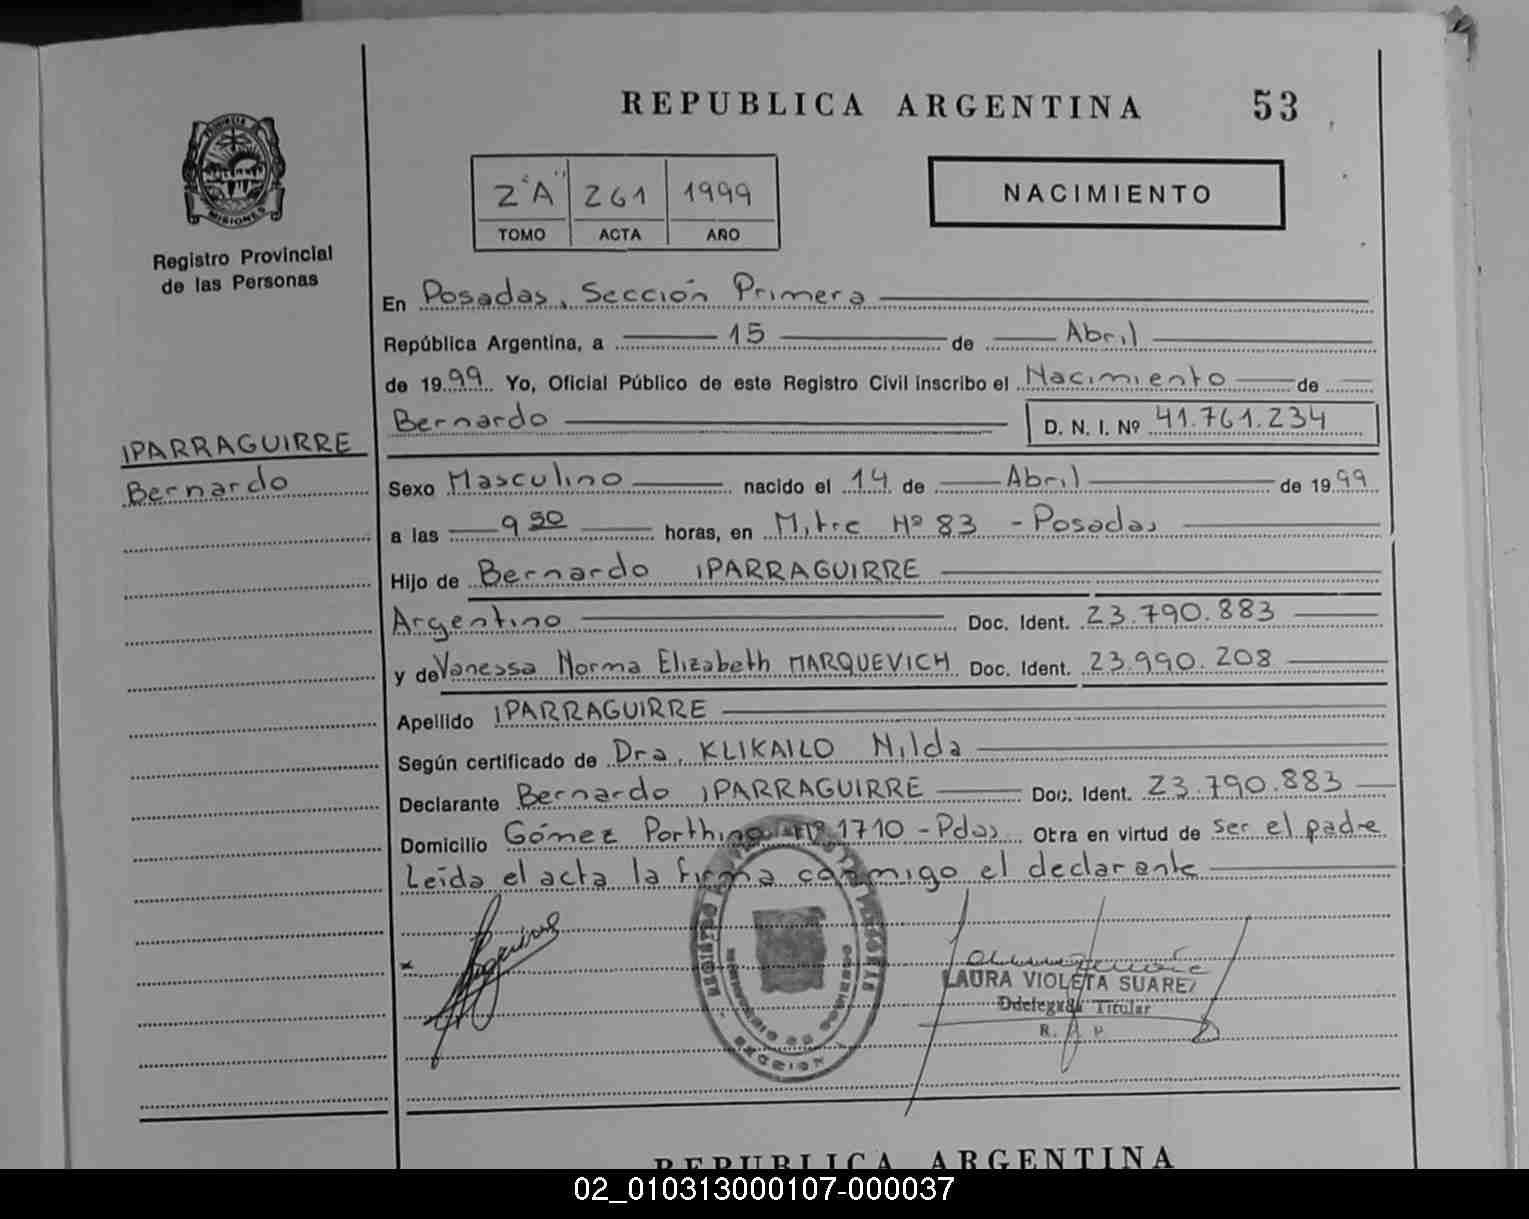 REPUBLICA ARGENTINA 53
PROVINCIA DE
MISIONES
Registro Provincial
de las Personas
2"A" 261 1999
TOMO ACTA AÑO
NACIMIENTO
En Posadas, Sección Primera
República Argentina, a 15 de Abril
de 1999 Yo, Oficial Público de este Registro Civil inscribo el Nacimiento de
Bernardo D. N. I. Nº 41.761.234
IPARRAGUIRRE
Bernardo
Sexo Masculino nacido el 14 de Abril de 1999
a las 9 50 horas, en Mitre Nº 83 - Posadas
Hijo de Bernardo IPARRAGUIRRE
Argentino Doc. Ident. 23.790.883
y de Vanessa Norma Elizabeth MARQUEVICH Doc. Ident. 23.990.208
Apellido IPARRAGUIRRE
Según certificado de Dra. KLIKAILO Nilda
Declarante Bernardo IPARRAGUIRRE Doc. Ident. 23.790.883
Domicilio Gómez Porthino Nº 1710 - Pdas Otra en virtud de ser el padre
Leída el acta la firma conmigo el declarante
LAURA VIOLETA SUAREZ
Titular
REPUBLICA ARGENTINA
02_010313000107-000037